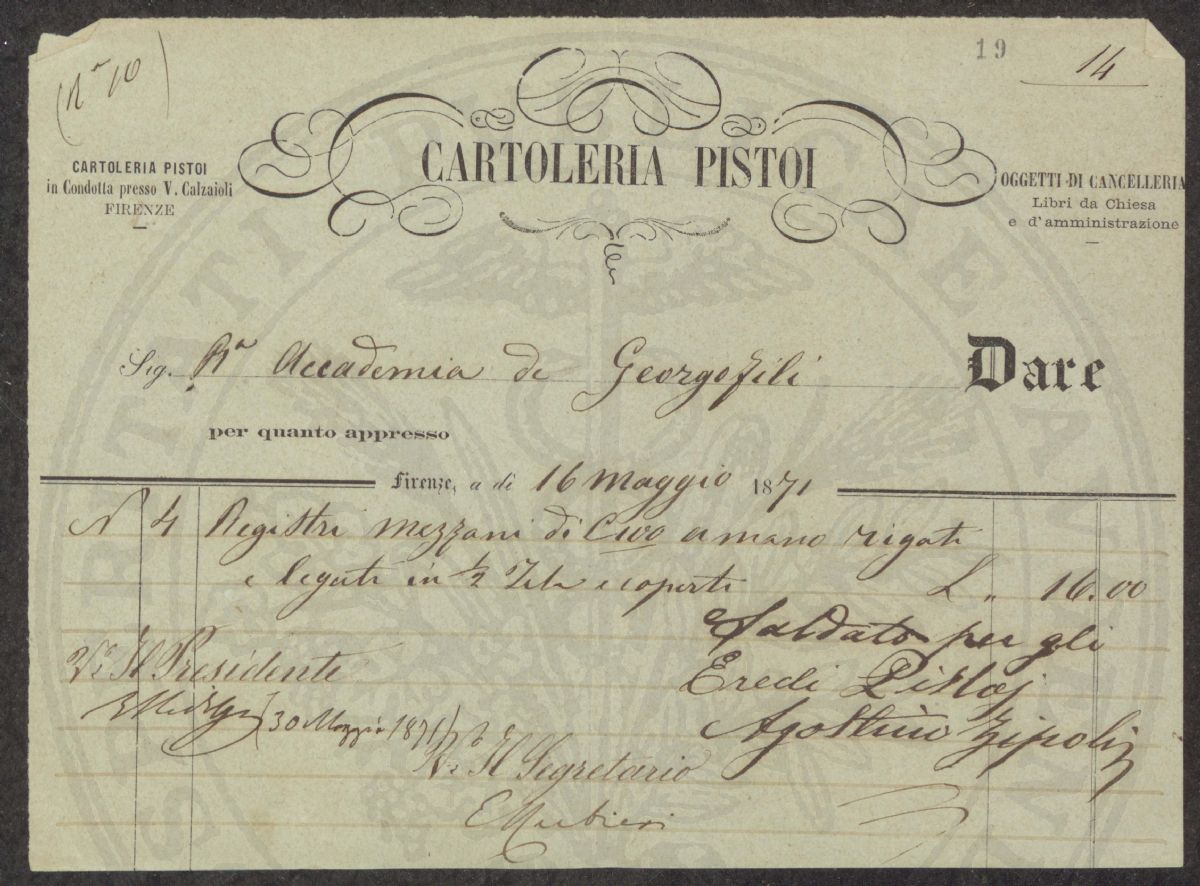 (N° 10)
19
14
CARTOLERIA PISTOI
in Condotta presso V. Calzaioli
FIRENZE
CARTOLERIA PISTOI
OGGETTI DI CANCELLERIA
Libri da Chiesa
e d'amministrazione
Sig. Rª Accademia de Georgofili
Dare
per quanto appresso
Firenze, a dì 16 Maggio 1871
N 4 Registri mezzani di a mano rigati
e legati in ½ Tela e coperti L „ 16.00
Saldato per gli
Eredi Pistoj
Agostino Zipoli
Vº Il Presidente
(30 Maggio 1871)
Vº Il Segretario